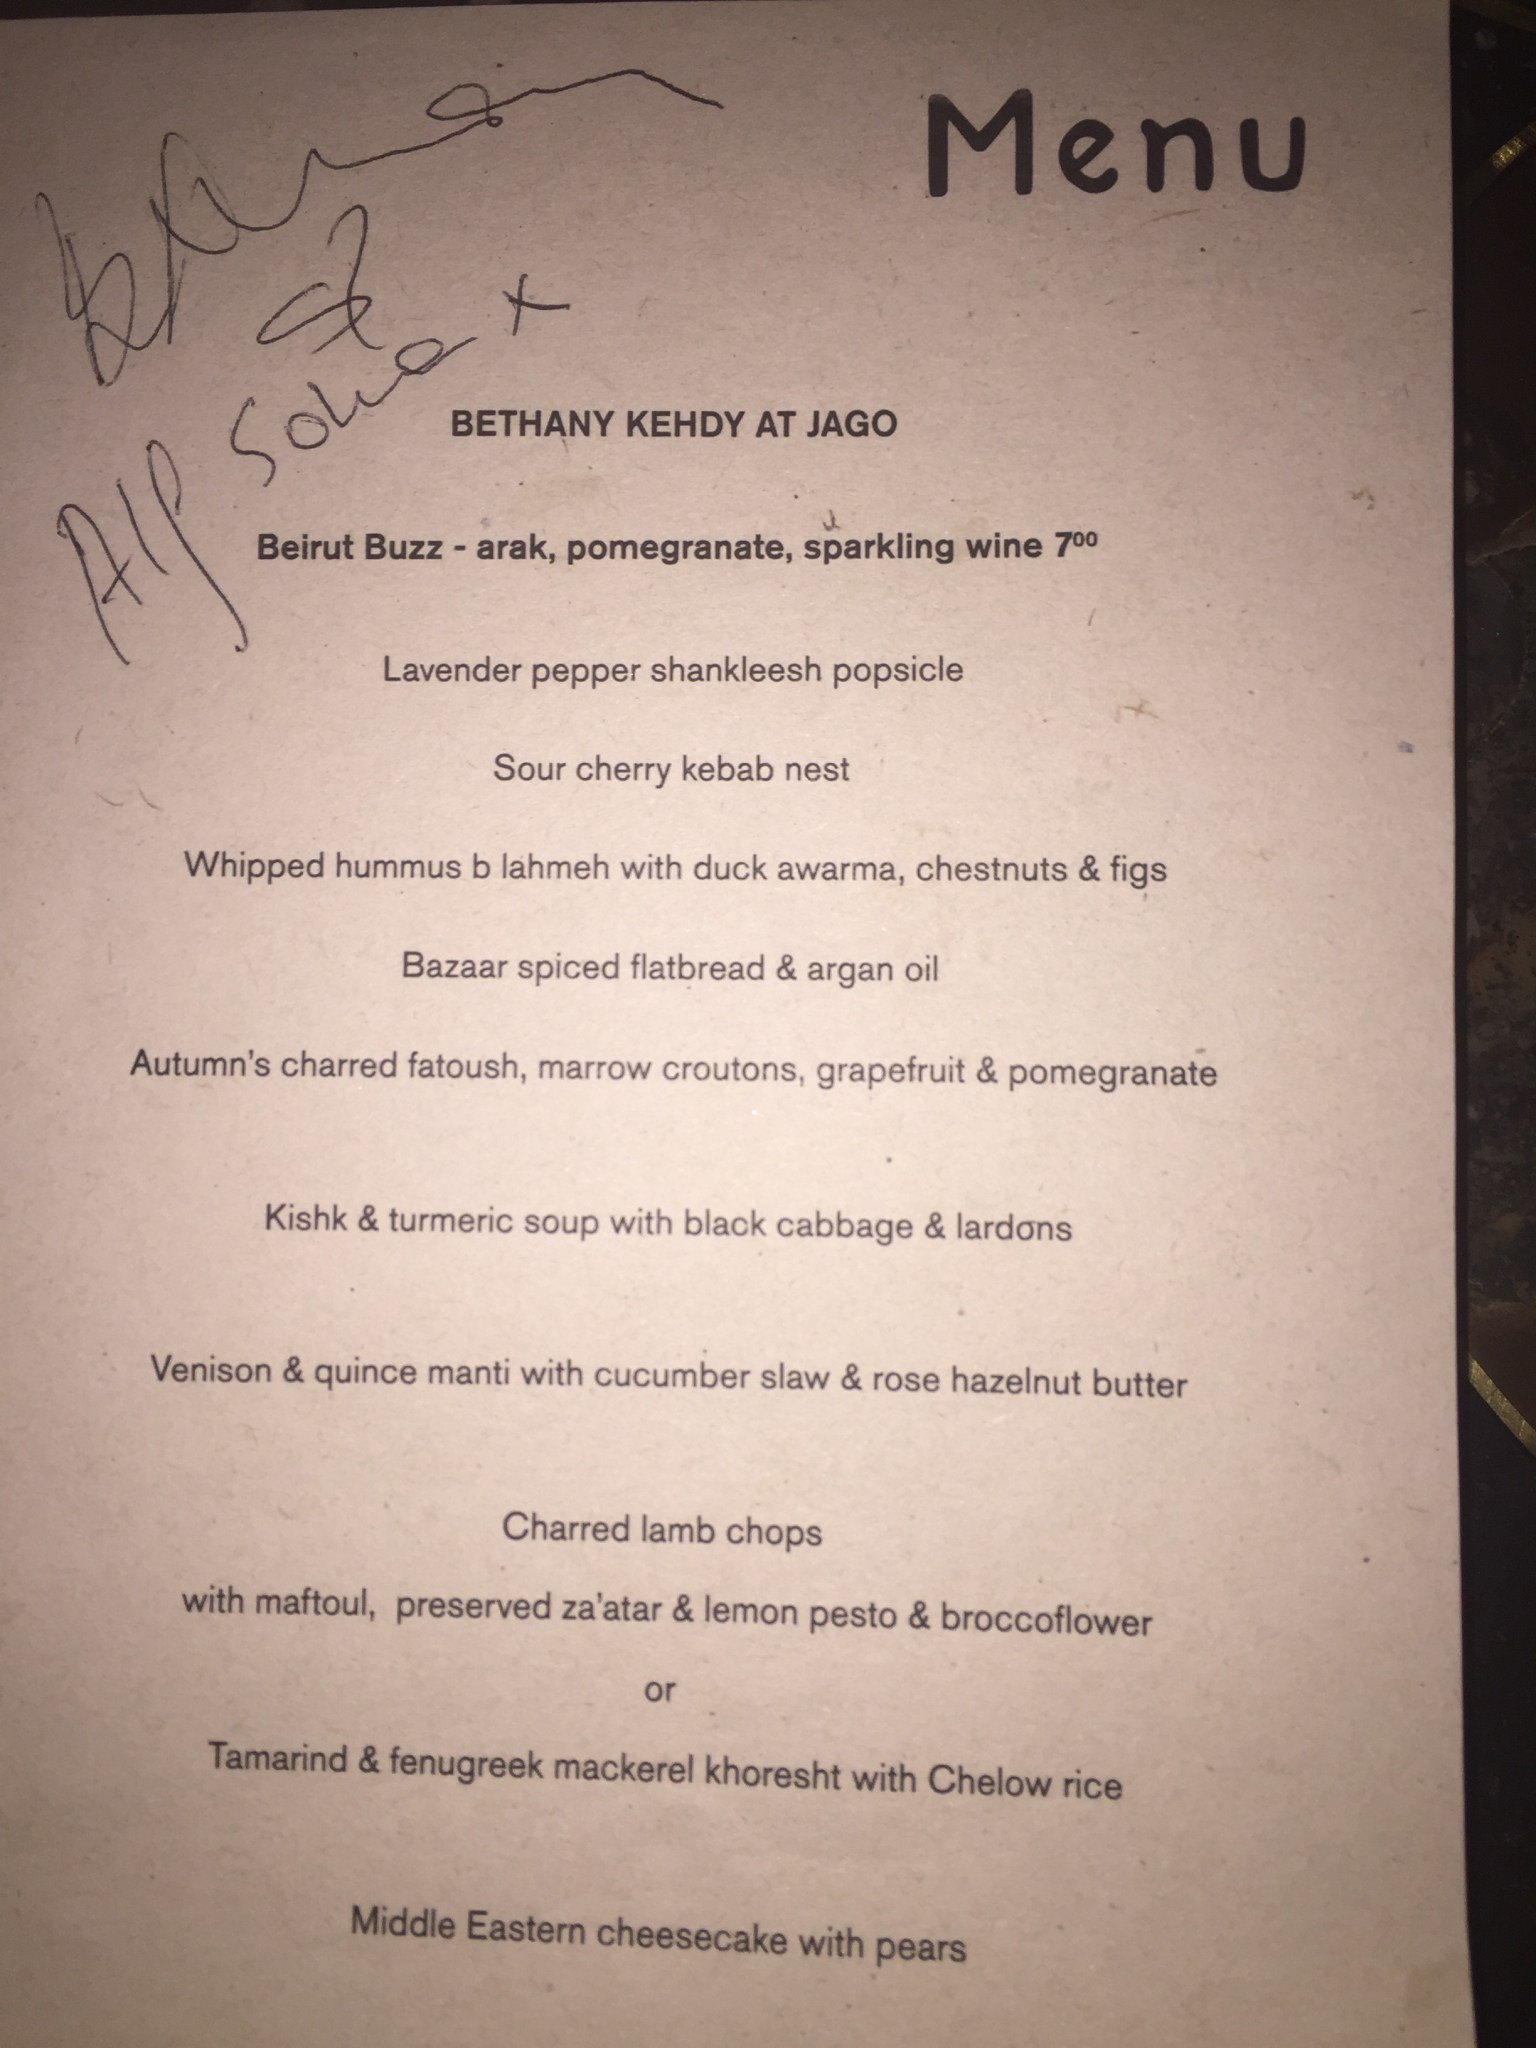 Menu
BETHANY KEHDY AT JAGO
Beirut Buzz - arak, pomegranate, sparkling wine 7⁰⁰
Lavender pepper shankleesh popsicle
Sour cherry kebab nest
Whipped hummus b lahmeh with duck awarma, chestnuts & figs
Bazaar spiced flatbread & argan oil
Autumn's charred fatoush, marrow croutons, grapefruit & pomegranate
Kishk & turmeric soup with black cabbage & lardons
Venison & quince manti with cucumber slaw & rose hazelnut butter
Charred lamb chops
with maftoul,  preserved za'atar & lemon pesto & broccoflower
or
Tamarind & fenugreek mackerel khoresht with Chelow rice
Middle Eastern cheesecake with pears